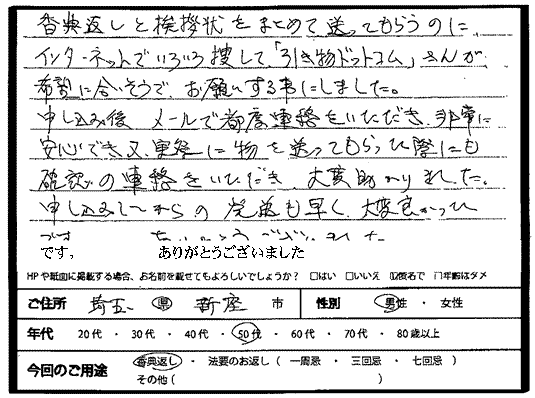 香典返しと挨拶状をまとめて送ってもらうのに、
インターネットでいろいろ捜して、「引き物ドットコム」さんが、
希望に合いそうで、お願いする事にしました。
申し込み後、メールで都度連絡をいただき、非常に
安心でき、又、実際に物を送ってもらった際にも
確認の連絡をいただき、大変助かりました。
申し込みしてからの発送も早く、大変良かった
です。 ありがとうございました
HPや紙面に掲載する場合、お名前を載せてもよろしいでしょうか? □はい □いいえ ☑匿名で □年齢はダメ
ご住所 埼玉 ・ 県 新座 市 性別 男性 ・ 女性
年代 20代 ・ 30代 ・ 40代 ・ 50代 ・ 60代 ・ 70代 ・ 80歳以上
今回のご用途 香典返し ・ 法要のお返し ( 一周忌 ・ 三回忌 ・ 七回忌 )
その他 ( )